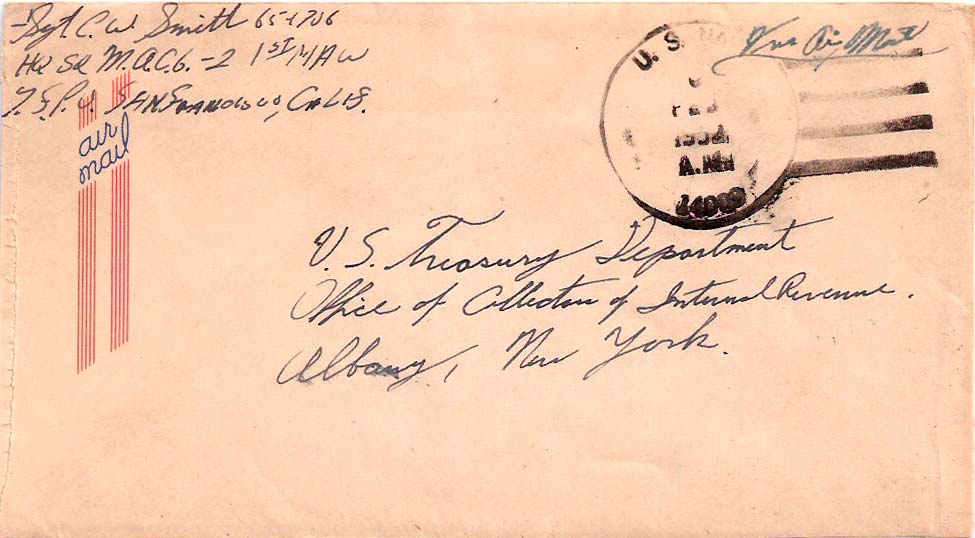 Sgt C. W. Smith
HQ SQ M.A.C.G. -2 1ST MAW
SAN FRANCISCO, CALIF.
air
mail
U. S. NA
FEB
1952
A.M.
14009
Via Air Mail
U. S. Treasury Department
Office of Collector of Internal Revenue.
Albany, New York.